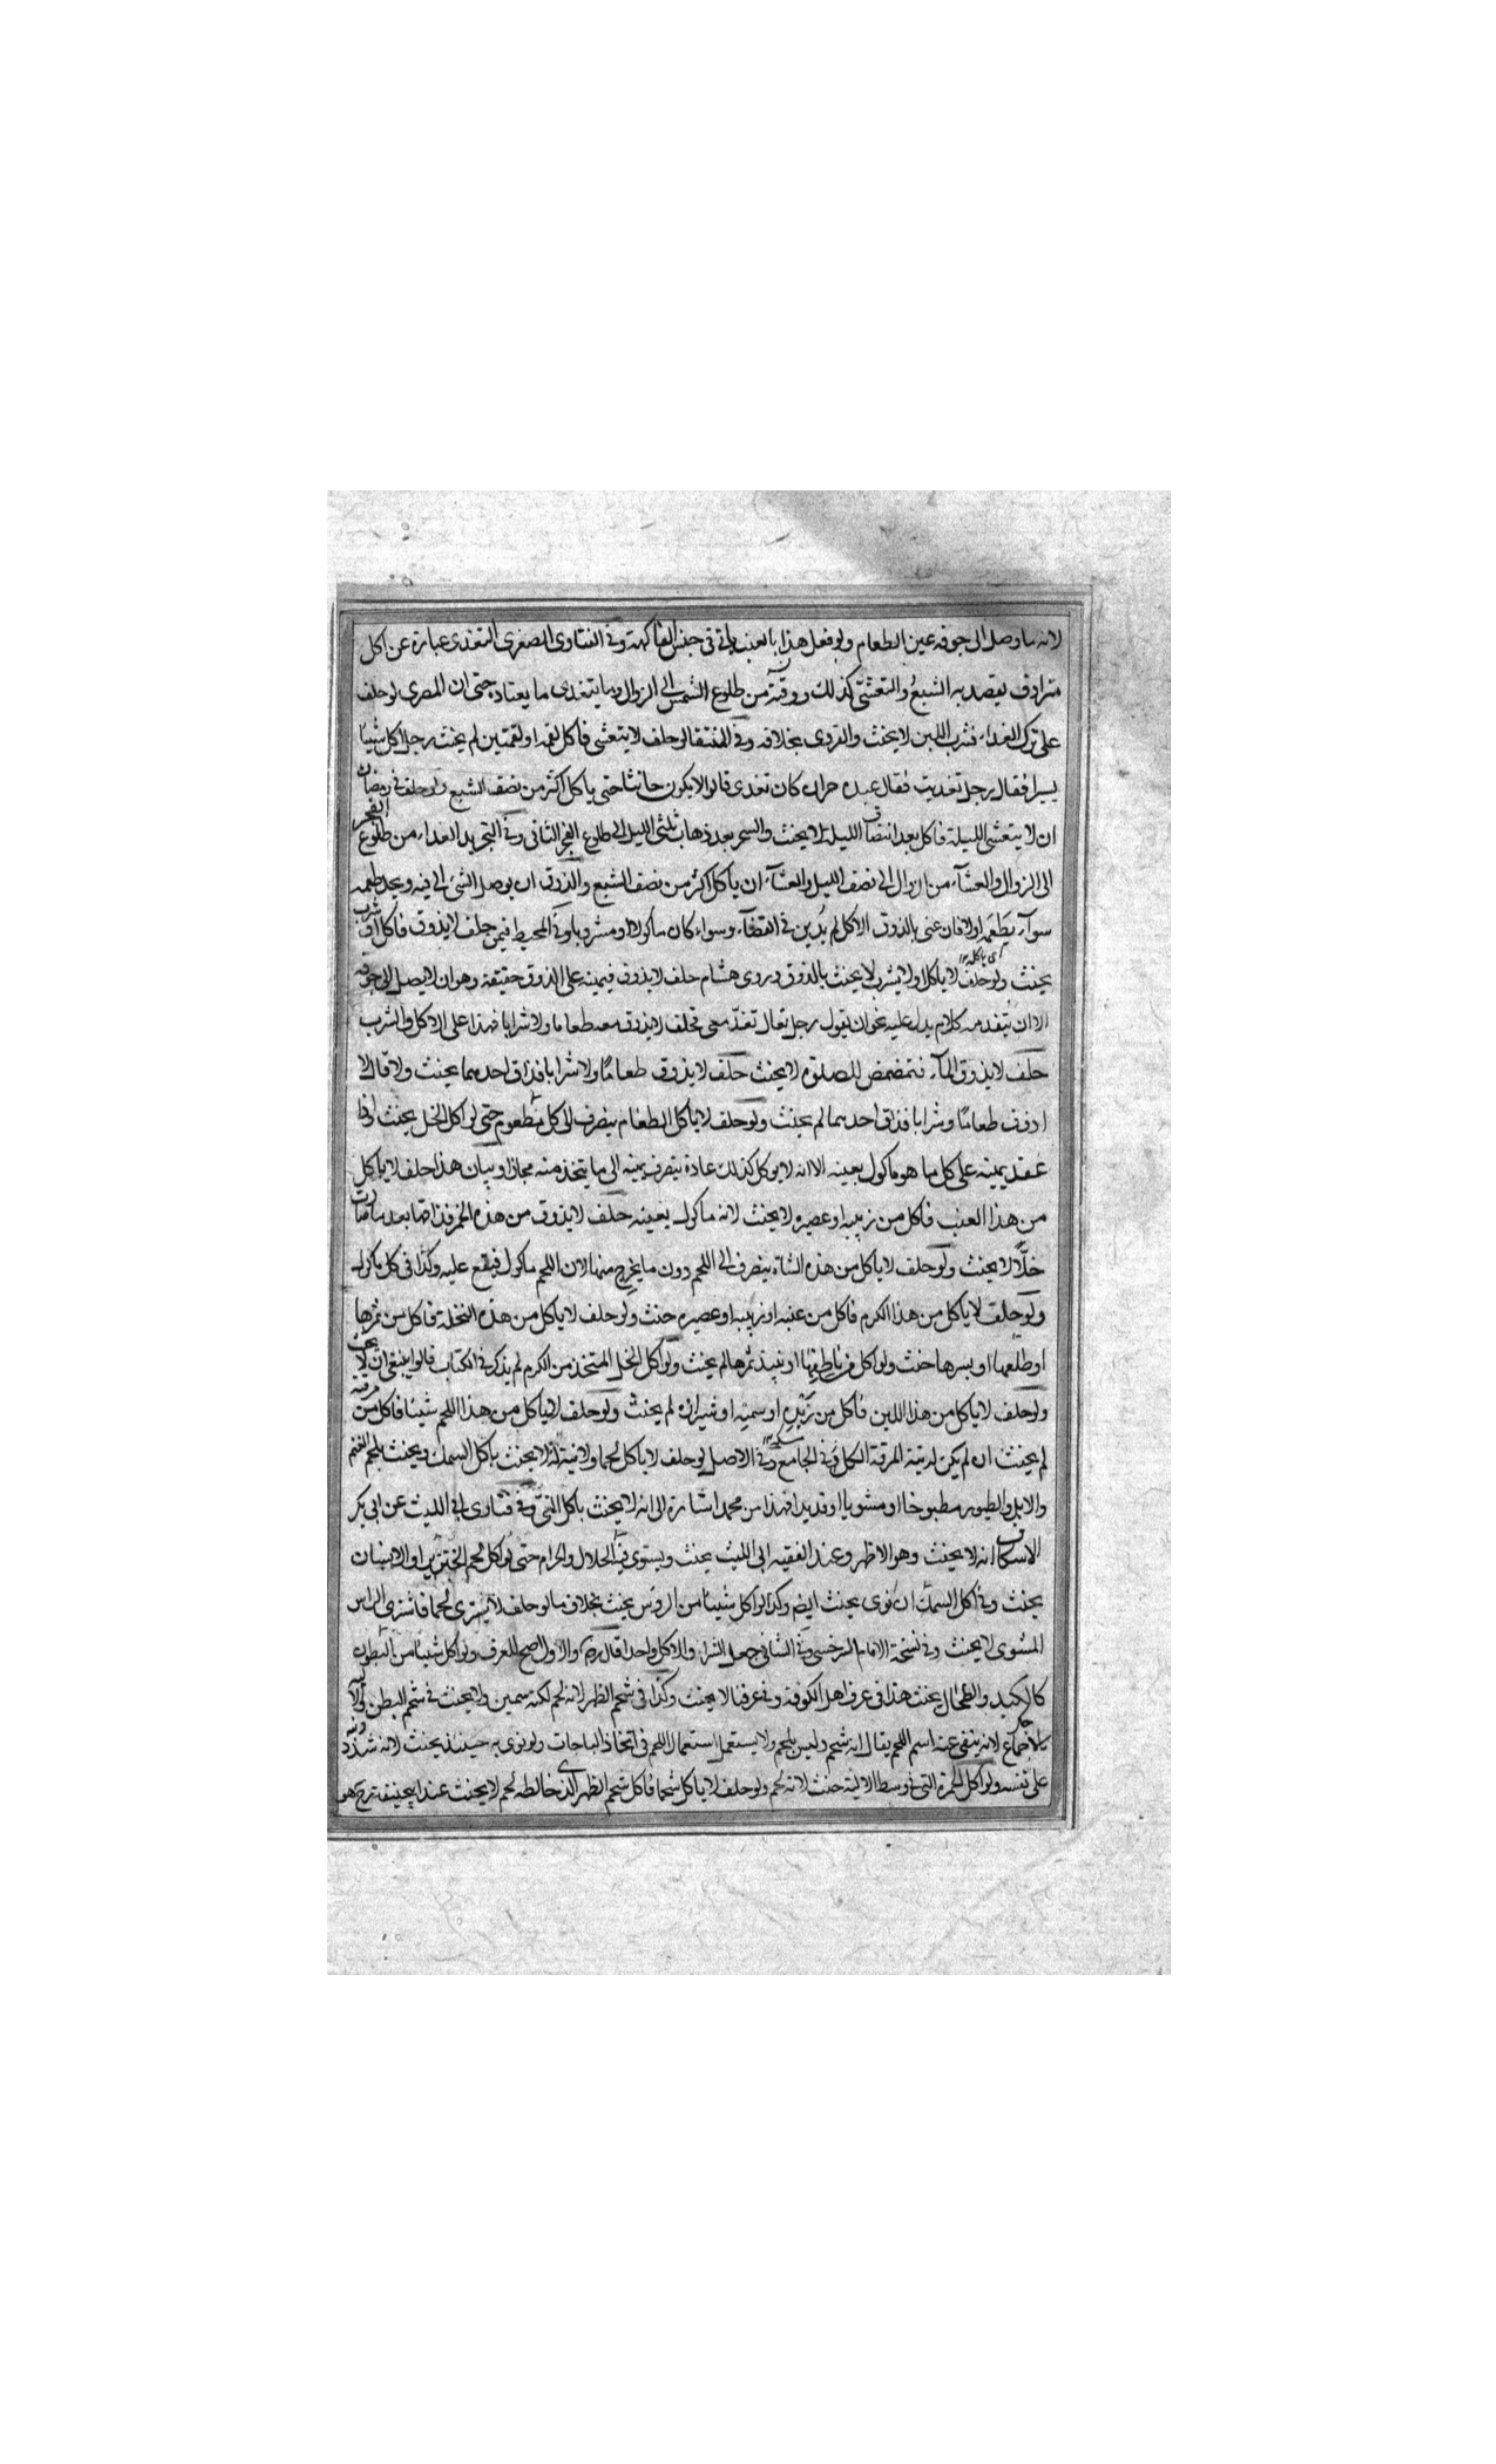 لانه ما وصل الى جوفه عين الطعام ولو فعل هذا بالعنب ياتى فى جنس الفاكهة وفى الفتاوى الصغرى التغدى عبارة عن اكل
مترادف يقصد به الشبع والتعشى كذلك ووقته من طلوع الشمس الى الزوال وما يتغدى ما يعتاده حتى ان المصرى لو حلف
على ترك الغداء فشرب اللبن لا يحنث والقروى بخلافه وفى المنتقى لو حلف لا يتعشى فاكل لقمة او لقمتين لم يحنث رجل اكل شيئا
يسيرا فقال رجل تغديت فقال عبده حر ان كان تغدى قالوا لا يكون حانثا حتى ياكل اكثر من نصف الشبع ولو حلف فى رمضان
ان لا يتعشى الليلة فاكل بعد انتصاف الليل لا يحنث والسحر بعد ذهاب ثلثى الليل الى طلوع الفجر الثانى وفى التجريد الغداء من طلوع الفجر
الى الزوال والعشآء من الزوال الى نصف الليل والعشآء ان ياكل اكثر من نصف الشبع والذوق ان يوصل الشئ الى فيه ويجد طعمه
سوآء يطعمه اولا فان عنى بالذوق الاكل لم يدين فى القضآء وسواء كان ماكولا او مشروبا وفى المحيط فيمن حلف لا يذوق فاكل او شرب
يحنث ولو حلف لا ياكل او لا يشرب لا يحنث بالذوق وروى هشام حلف لا يذوق فيمينه على الذوق حقيقة وهو ان لا يصل الى جوفه
الا ان يتقدمه كلام يدل عليه نحو ان يقول رجل تعال تغد معى فحلف لا يذوق معه طعاما ولا شرابا فهذا على الاكل والشرب
حلف لا يذوق المآء فتمضمض للصلوة لا يحنث حلف لا يذوق طعاما ولا شرابا فذاق احدهما يحنث ولو قال لا
اذوق طعاما وشرابا فذاق احدهما لم يحنث ولو حلف لا ياكل الطعام ينصرف الى كل مطعوم حتى لو اكل الخل يحنث اذا
عقد يمينه على كل ما هو ماكول بعينه الا انه لا يوكل كذلك عادة ينصرف يمينه الى ما يتخذ منه مجازا وبيان هذا حلف لا ياكل
من هذا العنب فاكل من زبيبه او عصيره لا يحنث لانه ماكول بعينه حلف لا يذوق من هذه الخمر فذاقها بعد ما صارت
خلًّا لا يحنث ولو حلف لا ياكل من هذه الشاة ينصرف الى اللحم دون ما يخرج منها لان اللحم ماكول فيقع عليه وكذا فى كل ماكول
ولو حلف لا ياكل من هذا الكرم فاكل من عنبه او زبيبه او عصيره حنث ولو حلف لا ياكل من هذه النخلة فاكل من ثمرها
او طلعها او بسرها حنث ولو اكل من او نبيذ ثمرها لم يحنث ولو اكل الخل المتخذ من الكرم لم يذكر فى الكتاب قالوا ينبغى ان لا يحنث
ولو حلف لا ياكل من هذا اللبن فاكل من زبده او سمنه او شيرازه لم يحنث ولو حلف لا ياكل من هذا اللحم شيئا فاكل من مرقته
لم يحنث ان لم يكن له نية المرقة الكل فى الجامع وفى الاصل لو حلف لا ياكل لحما ولا نية له لا يحنث باكل السمك ويحنث بلحم الغنم
والابل والطيور مطبوخا او مشويا او قديدا فهذا من محمد اشارة الى انه لا يحنث باكل النى وفى فتاوى ابى الليث عن ابى بكر
الاسكاف انه لا يحنث وهو الاظهر وعند الفقيه ابى الليث يحنث ويستوى فيه الحلال والحرام حتى لو اكل لحم الخنزير او الانسان
يحنث وفى اكل السمك ان نوى يحنث ايضا وكذا لو اكل شيئا من الروس يحنث بخلاف ما لو حلف لا يشترى لحما فاشترى الراس
المشوى لا يحنث وفى نسخة الامام السرخسى وفى الشافى جعل الشراء والاكل واحدا قال والاول اصح للعرف ولو اكل شيئا من البطون
كالكبد والطحال يحنث هذا فى عرف اهل الكوفة وفى عرفنا لا يحنث وكذا فى شحم الظهر لانه لحم لكنه سمين ولا يحنث فى شحم البطن
بالاجماع لانه ينفى عنه اسم اللحم يقال انه شحم وليس بلحم ولا يستعمل استعمال اللحم فى اتخاذ الباجات ولو نوى به حينئذ يحنث لانه شدد
على نفسه ولو اكل الحمرة التى فى وسط الالية حنث لانه لحم ولو حلف لا ياكل شحما فاكل شحم الظهر الذى خالطه لحم لا يحنث عند ابيحنيفة